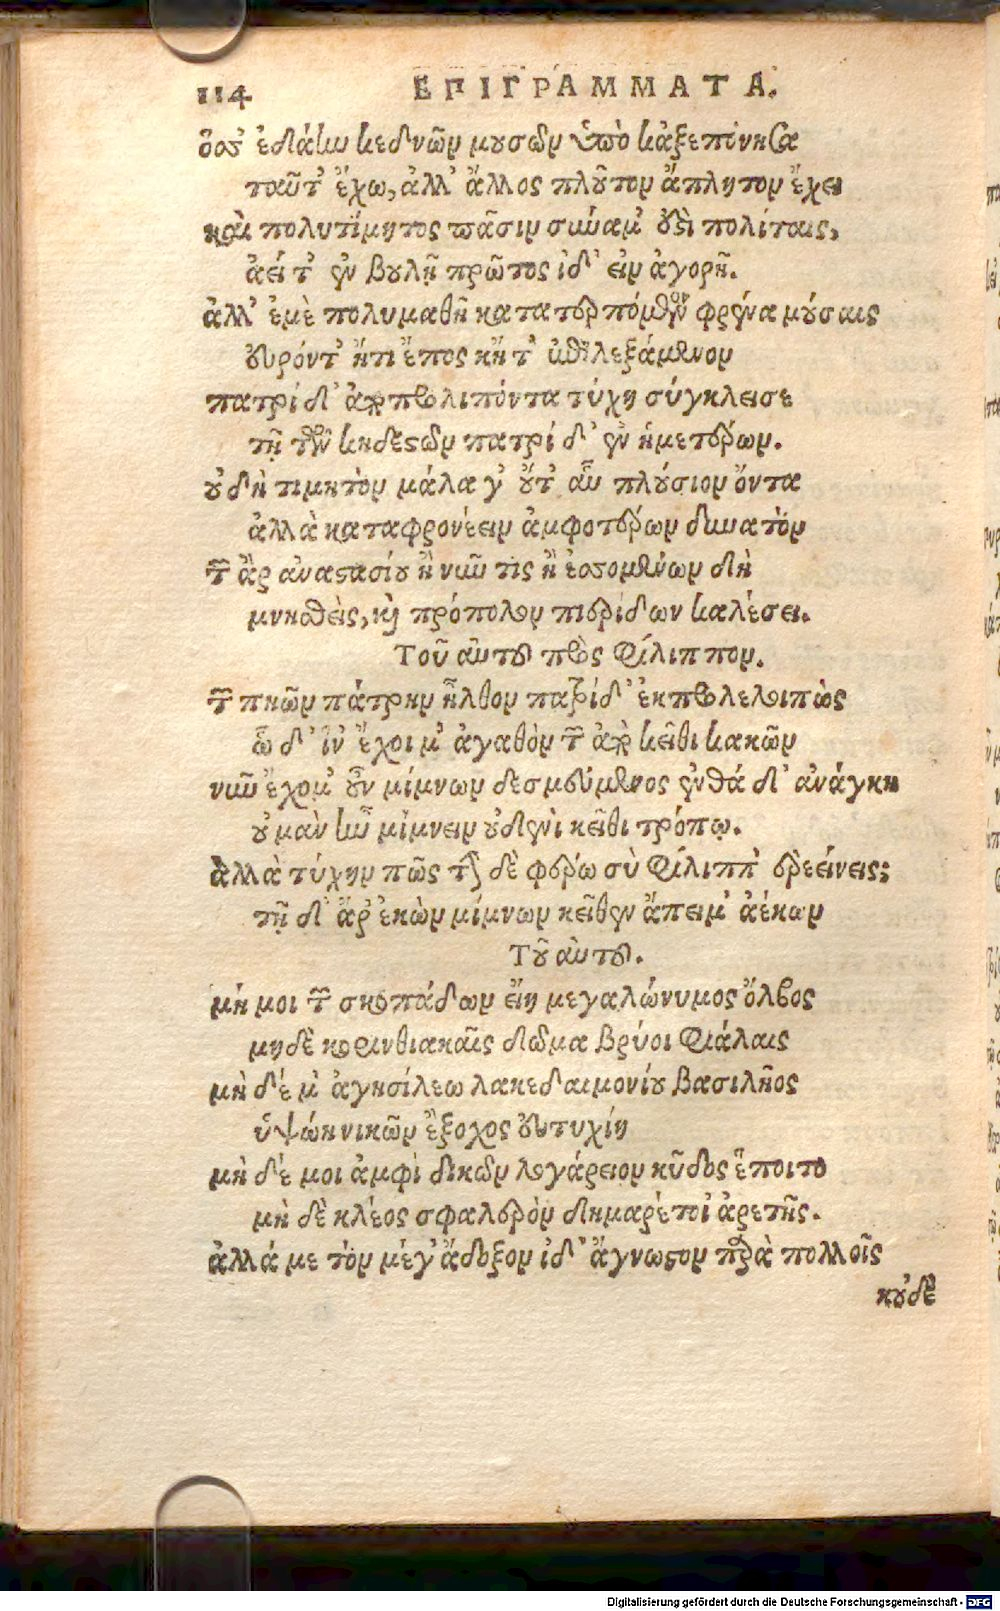 114 ΕΠΙΓΡΑΜΜΑΤΑ.
ὅσσ' ἐδάην κεδνῶν μουσῶν ὑπὸ κἀξεπόνησα
ταῦτ' ἔχω, ἀλλ' ἄλλος πλοῦτον ἄπλητον ἔχει
καὶ πολυτίμητος πᾶσιν πολίταις,
ἀεί τ' ἐν βουλῇ πρῶτος ἰδ' εἰν ἀγορῇ.
ἀλλ' ἐμὲ πολυμαθῆ κατατερπόμενον φρένα μούσαις
εὑρόντ' ἤτι ἔπος κἤτ' ἀπολεξάμενον
πατρίδ' ἀπολιπόντα τύχη σύγκλεισε
τῇ τῶν κηδεστῶν πατρίδ' ἐν ἡμετέρων.
οὐδὴ τιμητὸν μάλα γ' οὔτ' αὖ πλούσιον ὄντα
ἀλλὰ καταφρονέειν ἀμφοτέρων δυνατὸν
τῶν ἂρ ἀναστασίου ἢ νῦν τις ἢ ἐσσομένων δὴ
μνησθεὶς, καὶ πρόπολον πιερίδων καλέσει.
Τοῦ αὐτοῦ πρὸς Φίλιππον.
τῶν πηῶν πάτρην ἦλθον πατρίδ' ἐκπρολελοιπὼς
ὧδ' ἵν' ἔχοι μ' ἀγαθὸν τῶν ἀπὸ κεῖθι κακῶν
νῦν ἔχομ' οὖν μίμνων δεσμεύμενος ἐνθάδ' ἀνάγκη
οὐ μὰν ἦν μίμνειν οὐδενὶ κεῖθι τρόπῳ.
ἀλλὰ τύχην πῶς τήνδε φέρω σὺ Φίλιππ' ἐρεείνεις;
τῇδ' ἄρ' ἑκὼν μίμνων κεῖθεν ἄπειμ' ἀέκων
Τοῦ αὐτοῦ.
μή μοι τῶν σκοπάδων εἴη μεγαλώνυμος ὄλβος
μηδὲ κορινθιακαῖς δῶμα βρύοι φιάλαις
μὴ δέ μ' ἀγησίλεω λακεδαιμονίου βασιλῆος
ὑψώῃ νικῶν ἔξοχος εὐτυχίη
μὴ δέ μοι ἀμφὶ δικῶν λογάρειον κῦδος ἕποιτο
μὴ δὲ κλέος σφαλερὸν δημαρέτοἰ ἀρετῆς.
ἀλλά με τὸν μέγ' ἄδοξον ἰδ' ἄγνωστον παρὰ πολλοῖς
κοὐδὲν
Digitalisierung gefördert durch die Deutsche Forschungsgemeinschaft - DFG